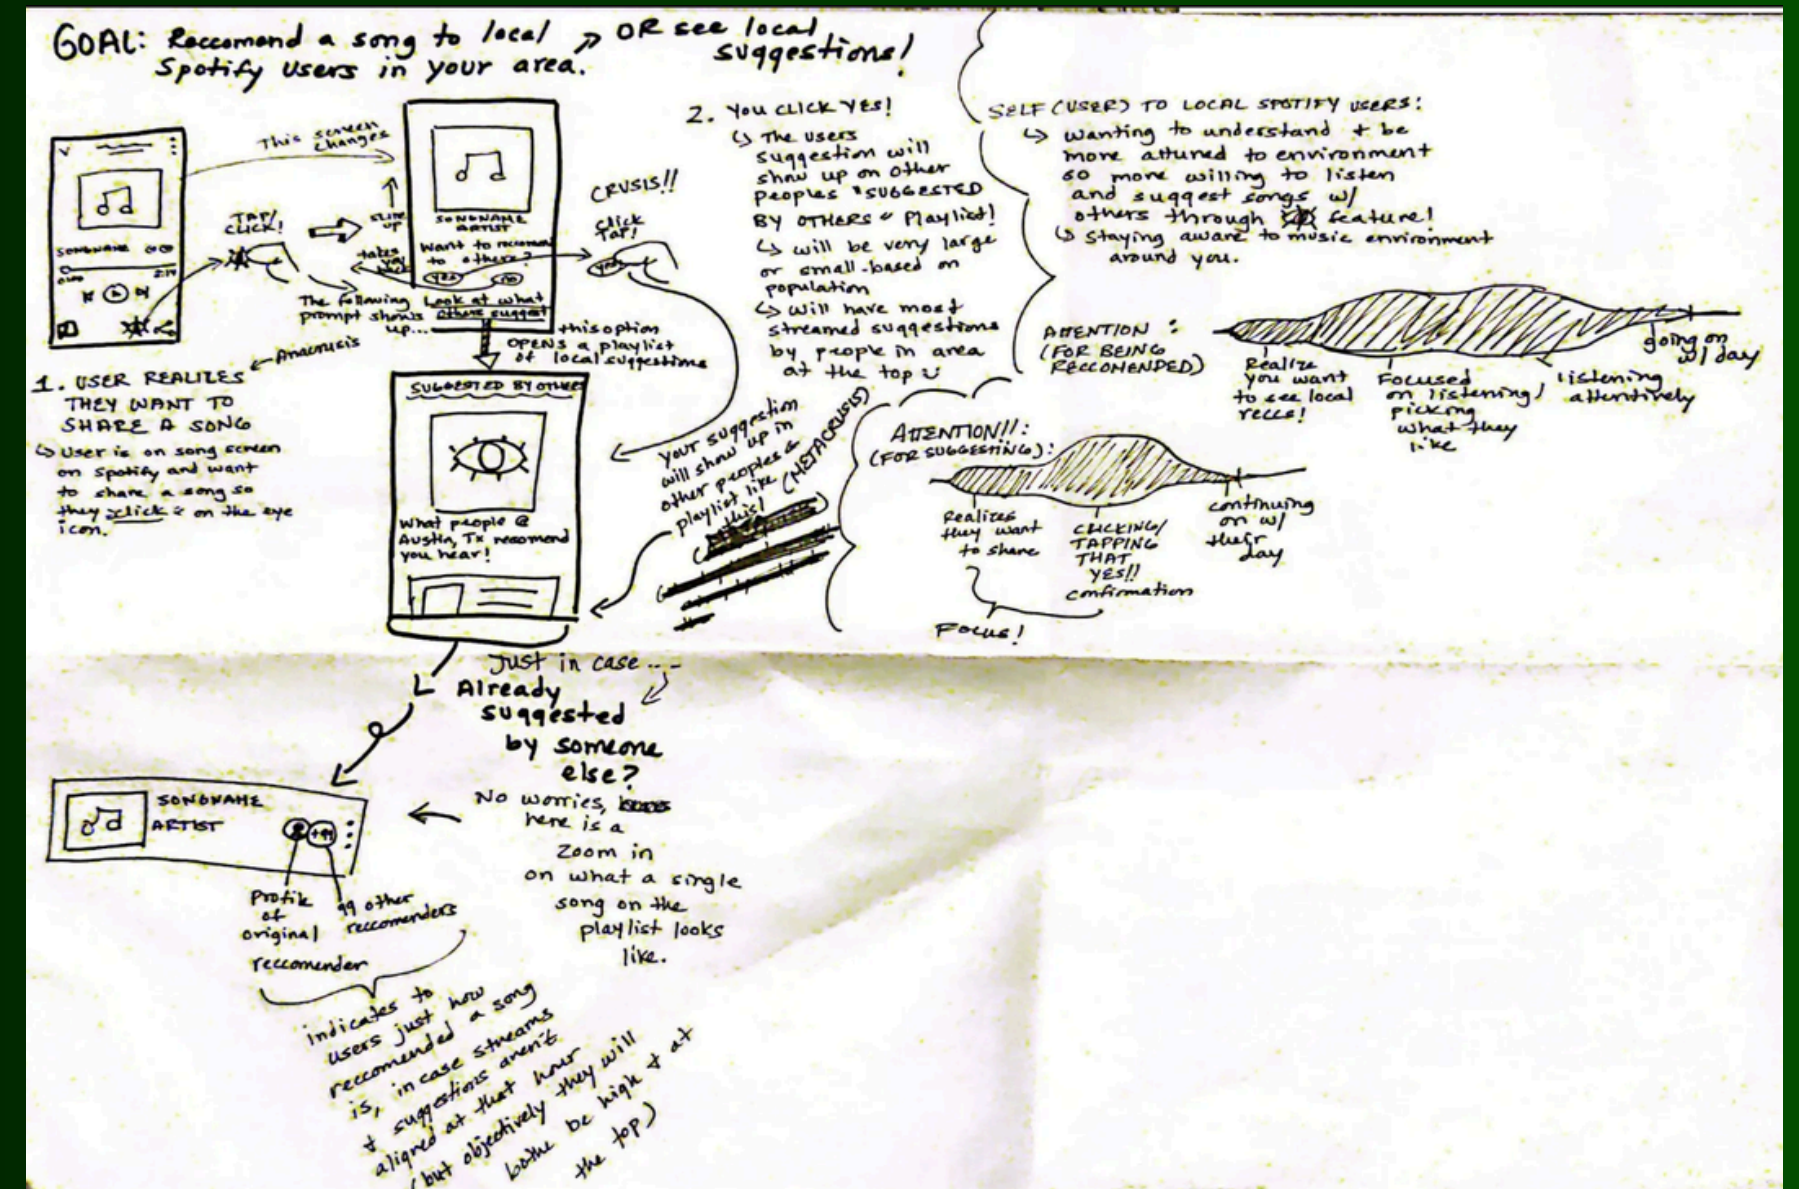 GOAL: Reccomend a song to local
Spotify users in your area.
OR see local
suggestions!
This screen
changes
SONGNAME
0:00
2:14
TAP/
CLICK!
SLIDE
UP
takes
you
back
SONGNAME
ARTIST
Want to recomend
to others?
yes
no
Look at what
others suggest
The following
prompt shows
up...
CRUSIS!!
Click
TAP!
yes
Anacrusis
this option
OPENS a playlist
of local suggestions
1. USER REALIZES
THEY WANT TO
SHARE A SONG
User is on song screen
on spotify and want
to share a song so
they click on the eye
icon.
SUGGESTED BY OTHERS
What people @
Austin, Tx recomend
you hear!
2. YOU CLICK YES!
The users
suggestion will
show up on other
peoples "SUGGESTED
BY OTHERS" Playlist!
will be very large
or small-based on
population
will have most
streamed suggestions
by people in area
at the top
your suggestion
will show up in
other peoples
playlist like
this!
(METACRUSIS)
SELF (USER) TO LOCAL SPOTIFY USERS:
wanting to understand + be
more attuned to environment
so more willing to listen
and suggest songs w/
others through feature!
Staying aware to music environment
around you.
ATTENTION:
(FOR BEING
RECCOMENDED)
Realize
you want
to see local
reccs!
Focused
on listening/
picking
what they
like
listening
attentitively
going on
w/ day
ATTENTION!!:
(FOR SUGGESTING):
Realizes
they want
to share
CLICKING/
TAPPING
THAT
YES!!
confirmation
continuing
on w/
their
day
Focus!
Just in case...
Already
suggested
by someone
else?
No worries,
here is a
zoom in
on what a single
song on the
playlist looks
like.
SONGNAME
ARTIST
+99
Profile
of
original
reccomender
99 other
reccomenders
indicates to
users just how
reccomended a song
is, in case streams
+ suggestions aren't
aligned at that hour
(but objectively they will
bothe be high + at
the top)